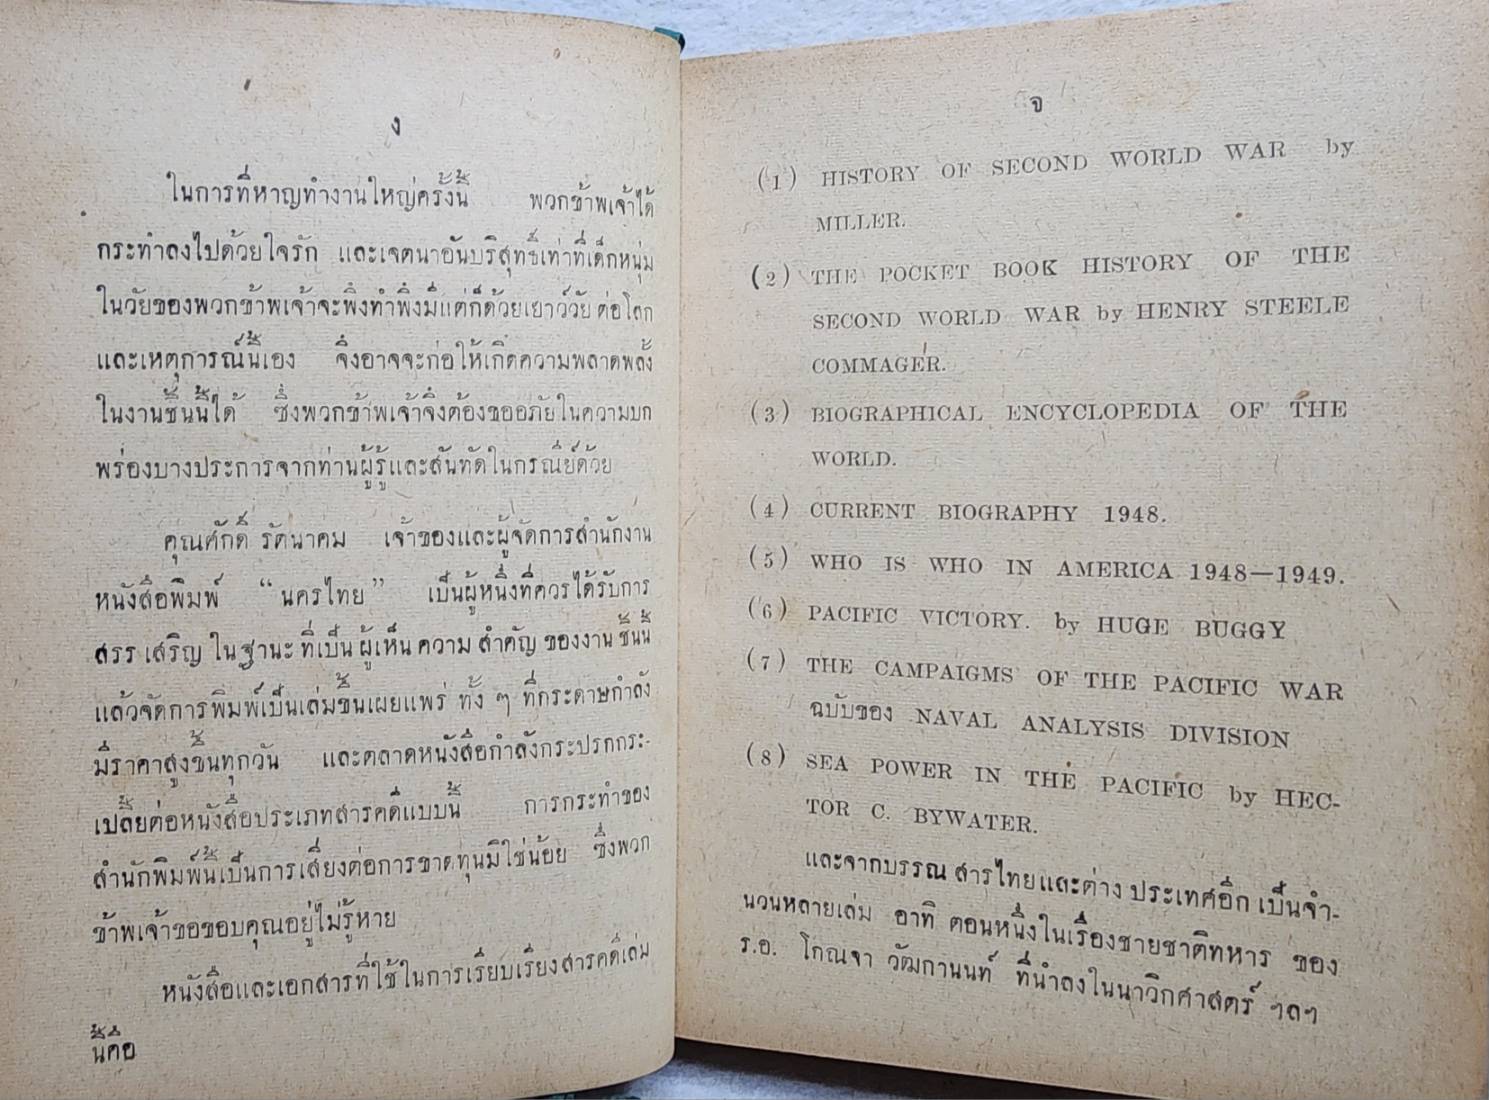 ง
ในการที่หาญทำงานใหญ่ครั้งนี้ พวกข้าพเจ้าได้
กระทำลงไปด้วยใจรัก และเจตนาอันบริสุทธิ์เท่าที่เด็กหนุ่ม
ในวัยของพวกข้าพเจ้าจะพึงทำพึงมีแต่ก็ด้วยเยาว์วัย ต่อโลก
และเหตุการณ์นี้เอง จึงอาจจะก่อให้เกิดความพลาดพลั้ง
ในงานชิ้นนี้ได้ ซึ่งพวกข้าพเจ้าจึงต้องขออภัยในความบก
พร่องบางประการจากท่านผู้รู้และสันทัดในกรณีย์ด้วย
คุณศักดิ์ รัตนาคม เจ้าของและผู้จัดการสำนักงาน
หนังสือพิมพ์ “นครไทย” เป็นผู้หนึ่งที่ควรได้รับการ
สรร เสริญ ในฐานะ ที่เป็น ผู้เห็น ความ สำคัญ ของงาน ชิ้นนี้
แล้วจัดการพิมพ์เป็นเล่มขึ้นเผยแพร่ ทั้ง ๆ ที่กระดาษกำลัง
มีราคาสูงขึ้นทุกวัน และตลาดหนังสือกำลังกระปรกกระ-
เปลี้ยต่อหนังสือประเภทสารคดีแบบนี้ การกระทำของ
สำนักพิมพ์นี้เป็นการเสี่ยงต่อการขาดทุนมิใช่น้อย ซึ่งพวก
ข้าพเจ้าขอขอบคุณอยู่ไม่รู้หาย
หนังสือและเอกสารที่ใช้ในการเรียบเรียงสารคดีเล่ม
นี้คือ
จ
(1) HISTORY OF SECOND WORLD WAR by
MILLER.
(2) THE POCKET BOOK HISTORY OF THE
SECOND WORLD WAR by HENRY STEELE
COMMAGER.
(3) BIOGRAPHICAL ENCYCLOPEDIA OF THE
WORLD.
(4) CURRENT BIOGRAPHY 1948.
(5) WHO IS WHO IN AMERICA 1948—1949.
(6) PACIFIC VICTORY. by HUGE BUGGY
(7) THE CAMPAIGMS OF THE PACIFIC WAR
ฉบับของ NAVAL ANALYSIS DIVISION
(8) SEA POWER IN THE PACIFIC by HEC-
TOR C. BYWATER.
และจากบรรณ สารไทยและต่าง ประเทศอีก เป็นจำ-
นวนหลายเล่ม อาทิ ตอนหนึ่งในเรื่องชายชาติทหาร ของ
ร.อ. โกณจา วัฒกานนท์ ที่นำลงในนาวิกศาสตร์ ฯลฯ